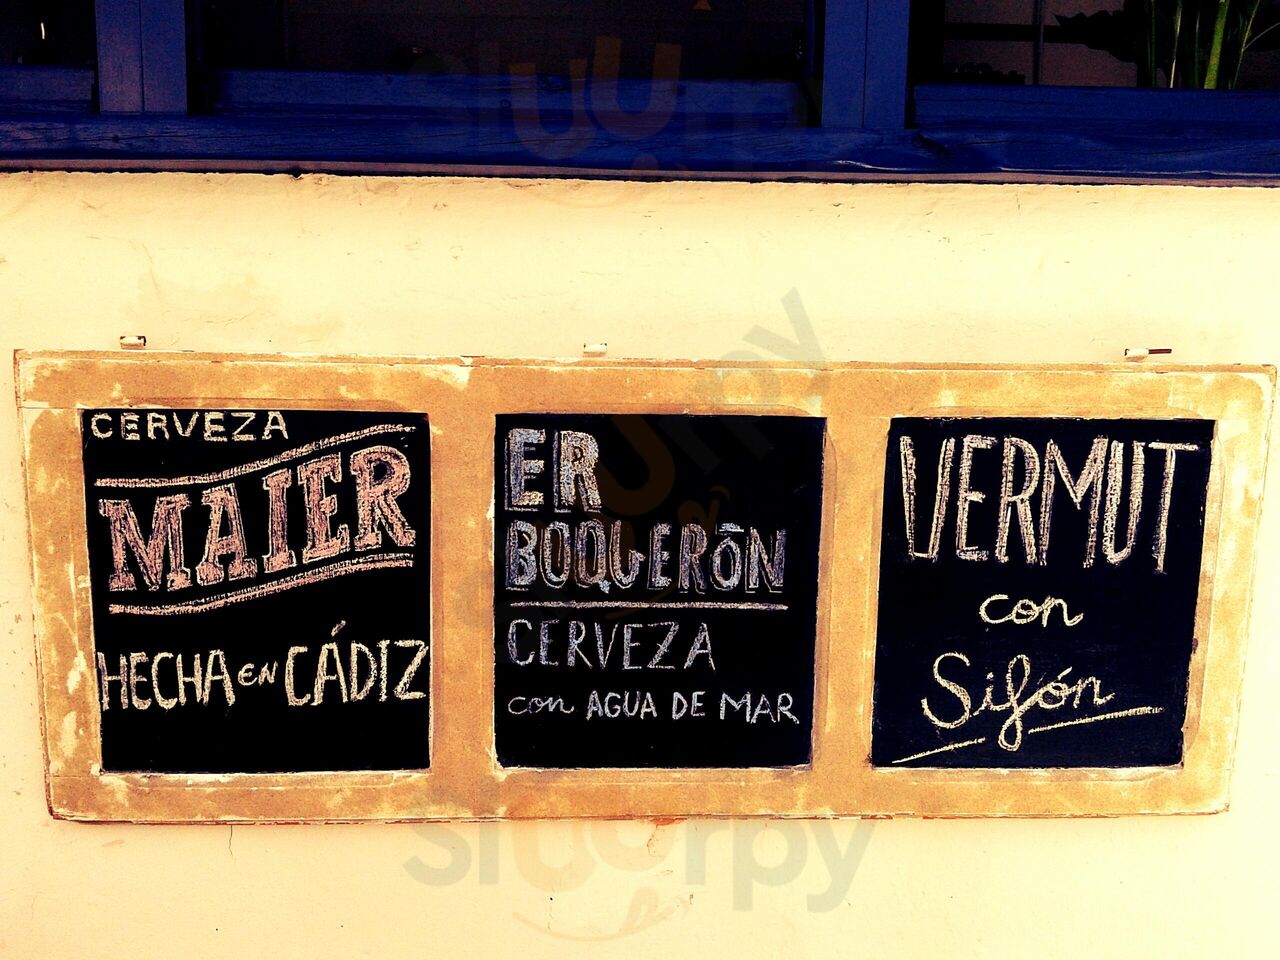 CERVEZA
MAIER
HECHA en CÁDIZ
ER
BOQUERÓN
CERVEZA
con AGUA DE MAR
VERMUT
con
Sifón
Sluurpy
Sluurpy
Sluurpy